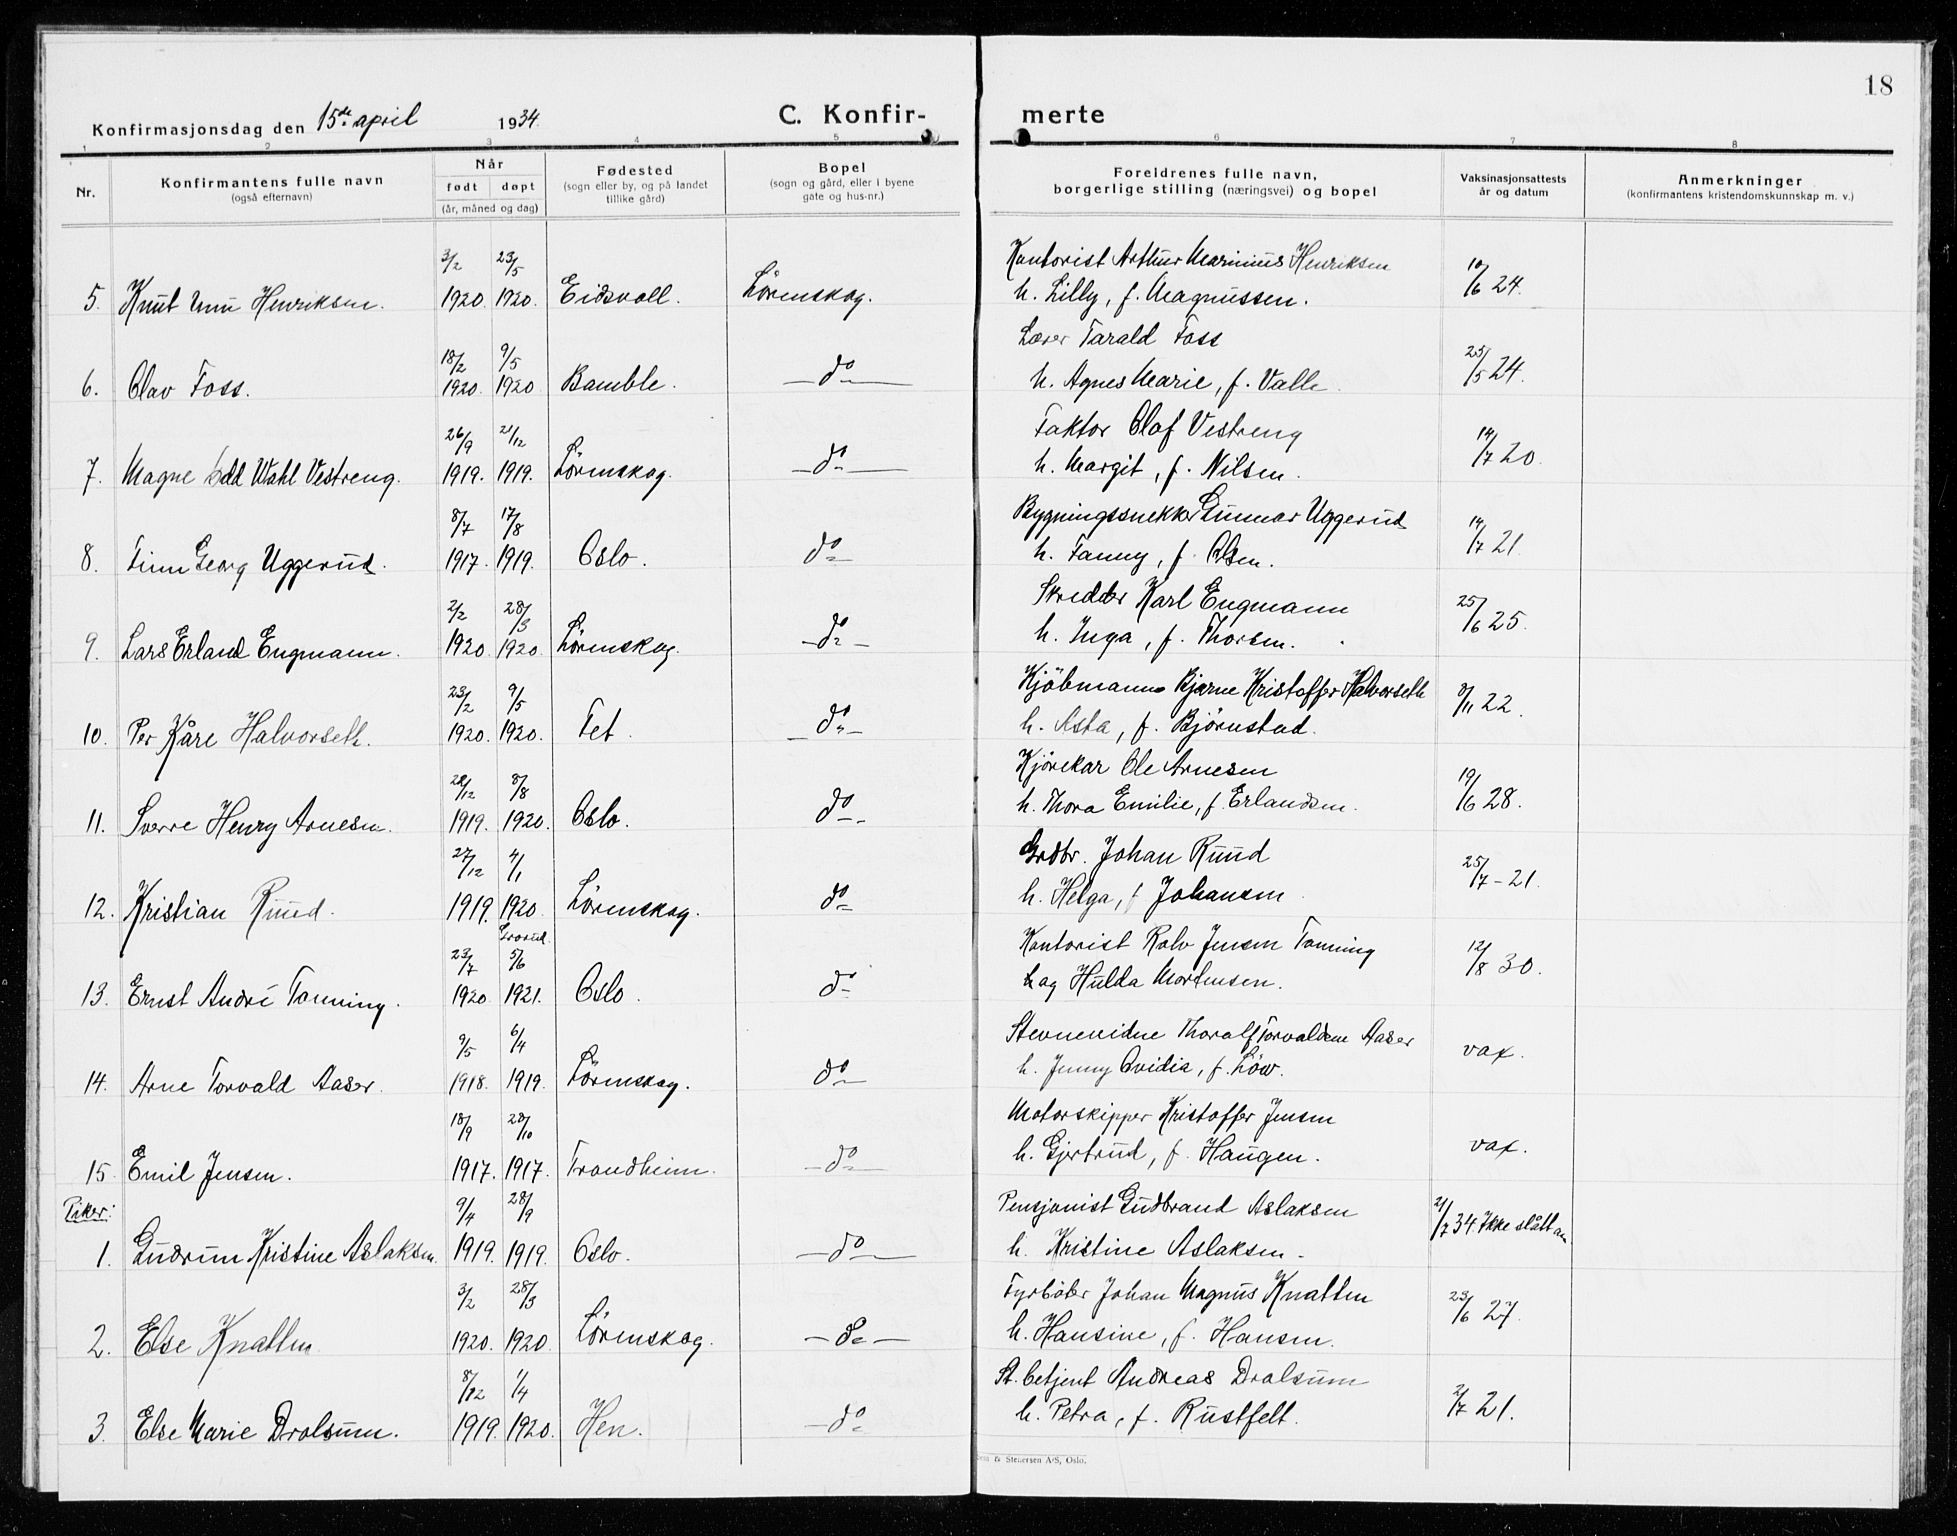 18
Konfirmasjonsdag den 15de april 1934.
C. Konfir-
merte
1 2 3 4 5 6 7 8
Nr.
Konfirmantens fulle navn
(også efternavn)
Når
født døpt
(år, måned og dag)
Fødested
(sogn eller by, og på landet
tillike gård)
Bopel
(sogn og gård, eller i byene
gate og hus-nr.)
Foreldrenes fulle navn,
borgerlige stilling (næringsvei) og bopel
Vaksinasjonsattests
år og datum
Anmerkninger
(konfirmantens kristendomskunnskap m. v.)
3/2 23/5 Kontorist Arthur Marinius Henriksen
5. Knut Henriksen. 1920. 1920. Eidsvoll. Lörenskog. h. Lilly, f. Magnussen. 10/6 24.
18/2 9/5 Lærer Tarald Foss
6. Olav Foss. 1920. 1920 Bamble. do h. Agnes Marie, f. Valle. 25/5 24.
26/9 21/12 Faktor Olaf Vestreng
7. Magne Odd Wahl Vestreng. 1919. 1919. Lörenskog. do h. Margit, f. Nilsen. 14/7 20.
8/7 17/8 Bygningssnekker Gunnar Uggerud
8. Finn Georg Uggerud. 1917. 1919. Oslo. do h. Fanny, f. Olsen. 14/7 21.
2/2 28/3 Skredder Karl Engmann
9. Lars Erland Engmann. 1920. 1920. Lörenskog. do h. Inga, f. Thorsen. 25/6 25.
23/2 9/5 Kjöbmann Bjarne Kristoffer Halvorseth
10. Per Kåre Halvorseth. 1920. 1920. Fet. do h. Asta, f. Björnstad. 8/11 22.
28/12 8/8 Kjörekar Ole Arnesen
11. Sverre Henry Arnesen. 1919. 1920. Oslo. do h. Thora Emilie, f. Erlandsen. 19/6 28.
27/12 4/1 Grdbr. Johan Ruud
12. Kristian Ruud. 1919. 1920. Lörenskog. do h. Helga, f Johansen. 25/7-21.
Grorud.
23/7 5/6 Kontorist Rolv Jensen Tonning
13. Ernst André Tonning. 1920. 1921. Oslo. do og Hulda Mortensen. 12/8 30.
9/5 6/4 Stevnevidne Thoralf Torvaldsen Aaser
14. Arne Torvald Aaser. 1918. 1919. Lörenskog. do h. Jenny Ovidia, f. Löw. vax.
18/9 28/10 Motorskipper Kristoffer Jensen
15. Emil Jensen. 1917. 1917. Trondheim. do h. Gjertrud, f. Haugen. vax.
Piker:
9/4 28/9 Pensjonist Gudbrand Aslaksen
1. Gudrun Kristine Aslaksen. 1919. 1919. Oslo. do h. Kristine Aslaksen. 21/2 34. Ikke slått an
3/2 28/3 Fyrböter Johan Magnus Knatten
2. Else Knatten. 1920. 1920. Lörenskog. do h. Hansine, f. Hansen. 23/6 27.
8/12 1/4 St. betjent Andreas Drolsum
3. Else Marie Drolsum. 1919. 1920. Hen. do h. Petra, f. Rustfelt. 2/7 21.
& Stenersen A/S, Oslo.